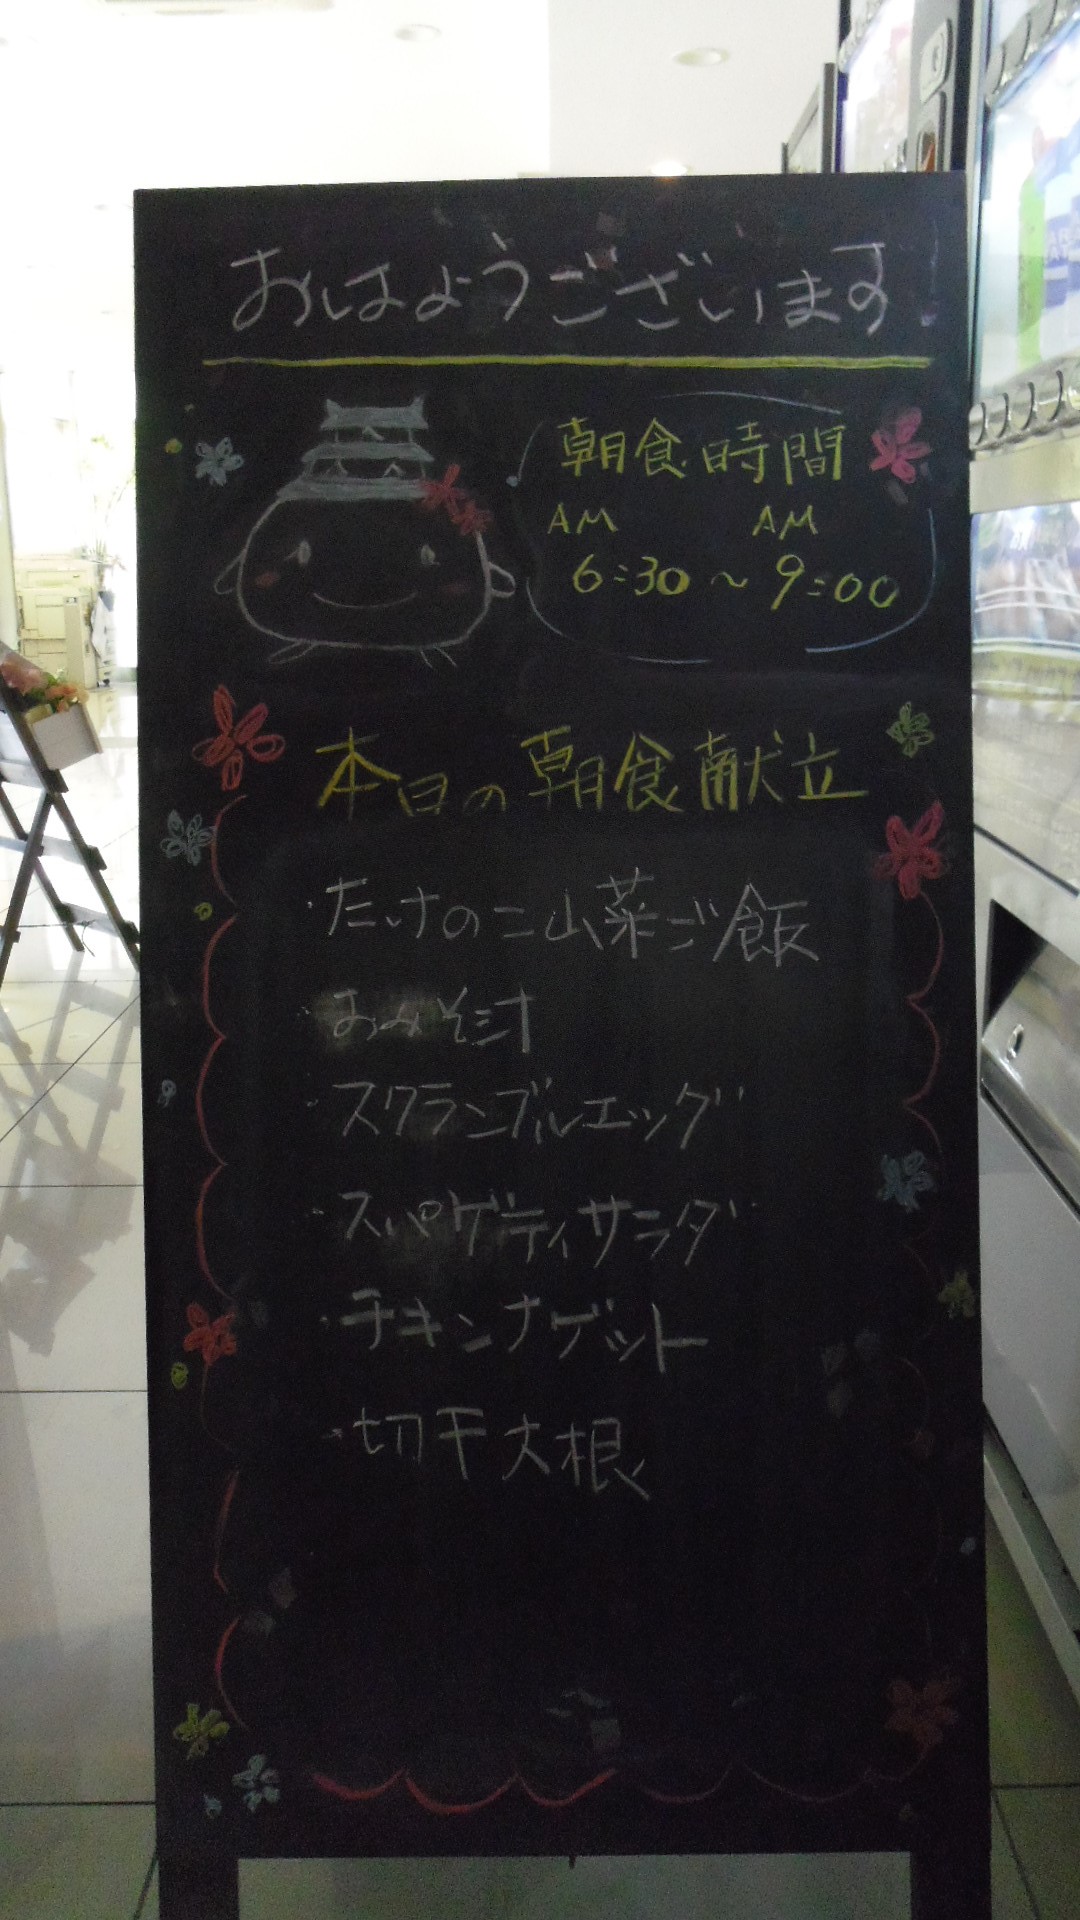 おはようございます!
朝食時間
AM AM
6:30~9:00
本日の朝食献立
・たけのこ山菜ご飯
・おみそ汁
・スクランブルエッグ
・スパゲティサラダ
・チキンナゲット
・切干大根